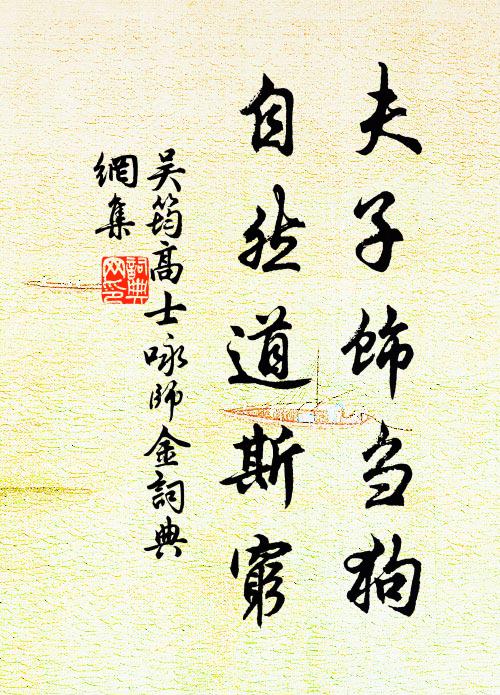 夫子饰刍狗
自然道斯窮
吴筠高士咏師金詞典
網集
詞典
网印